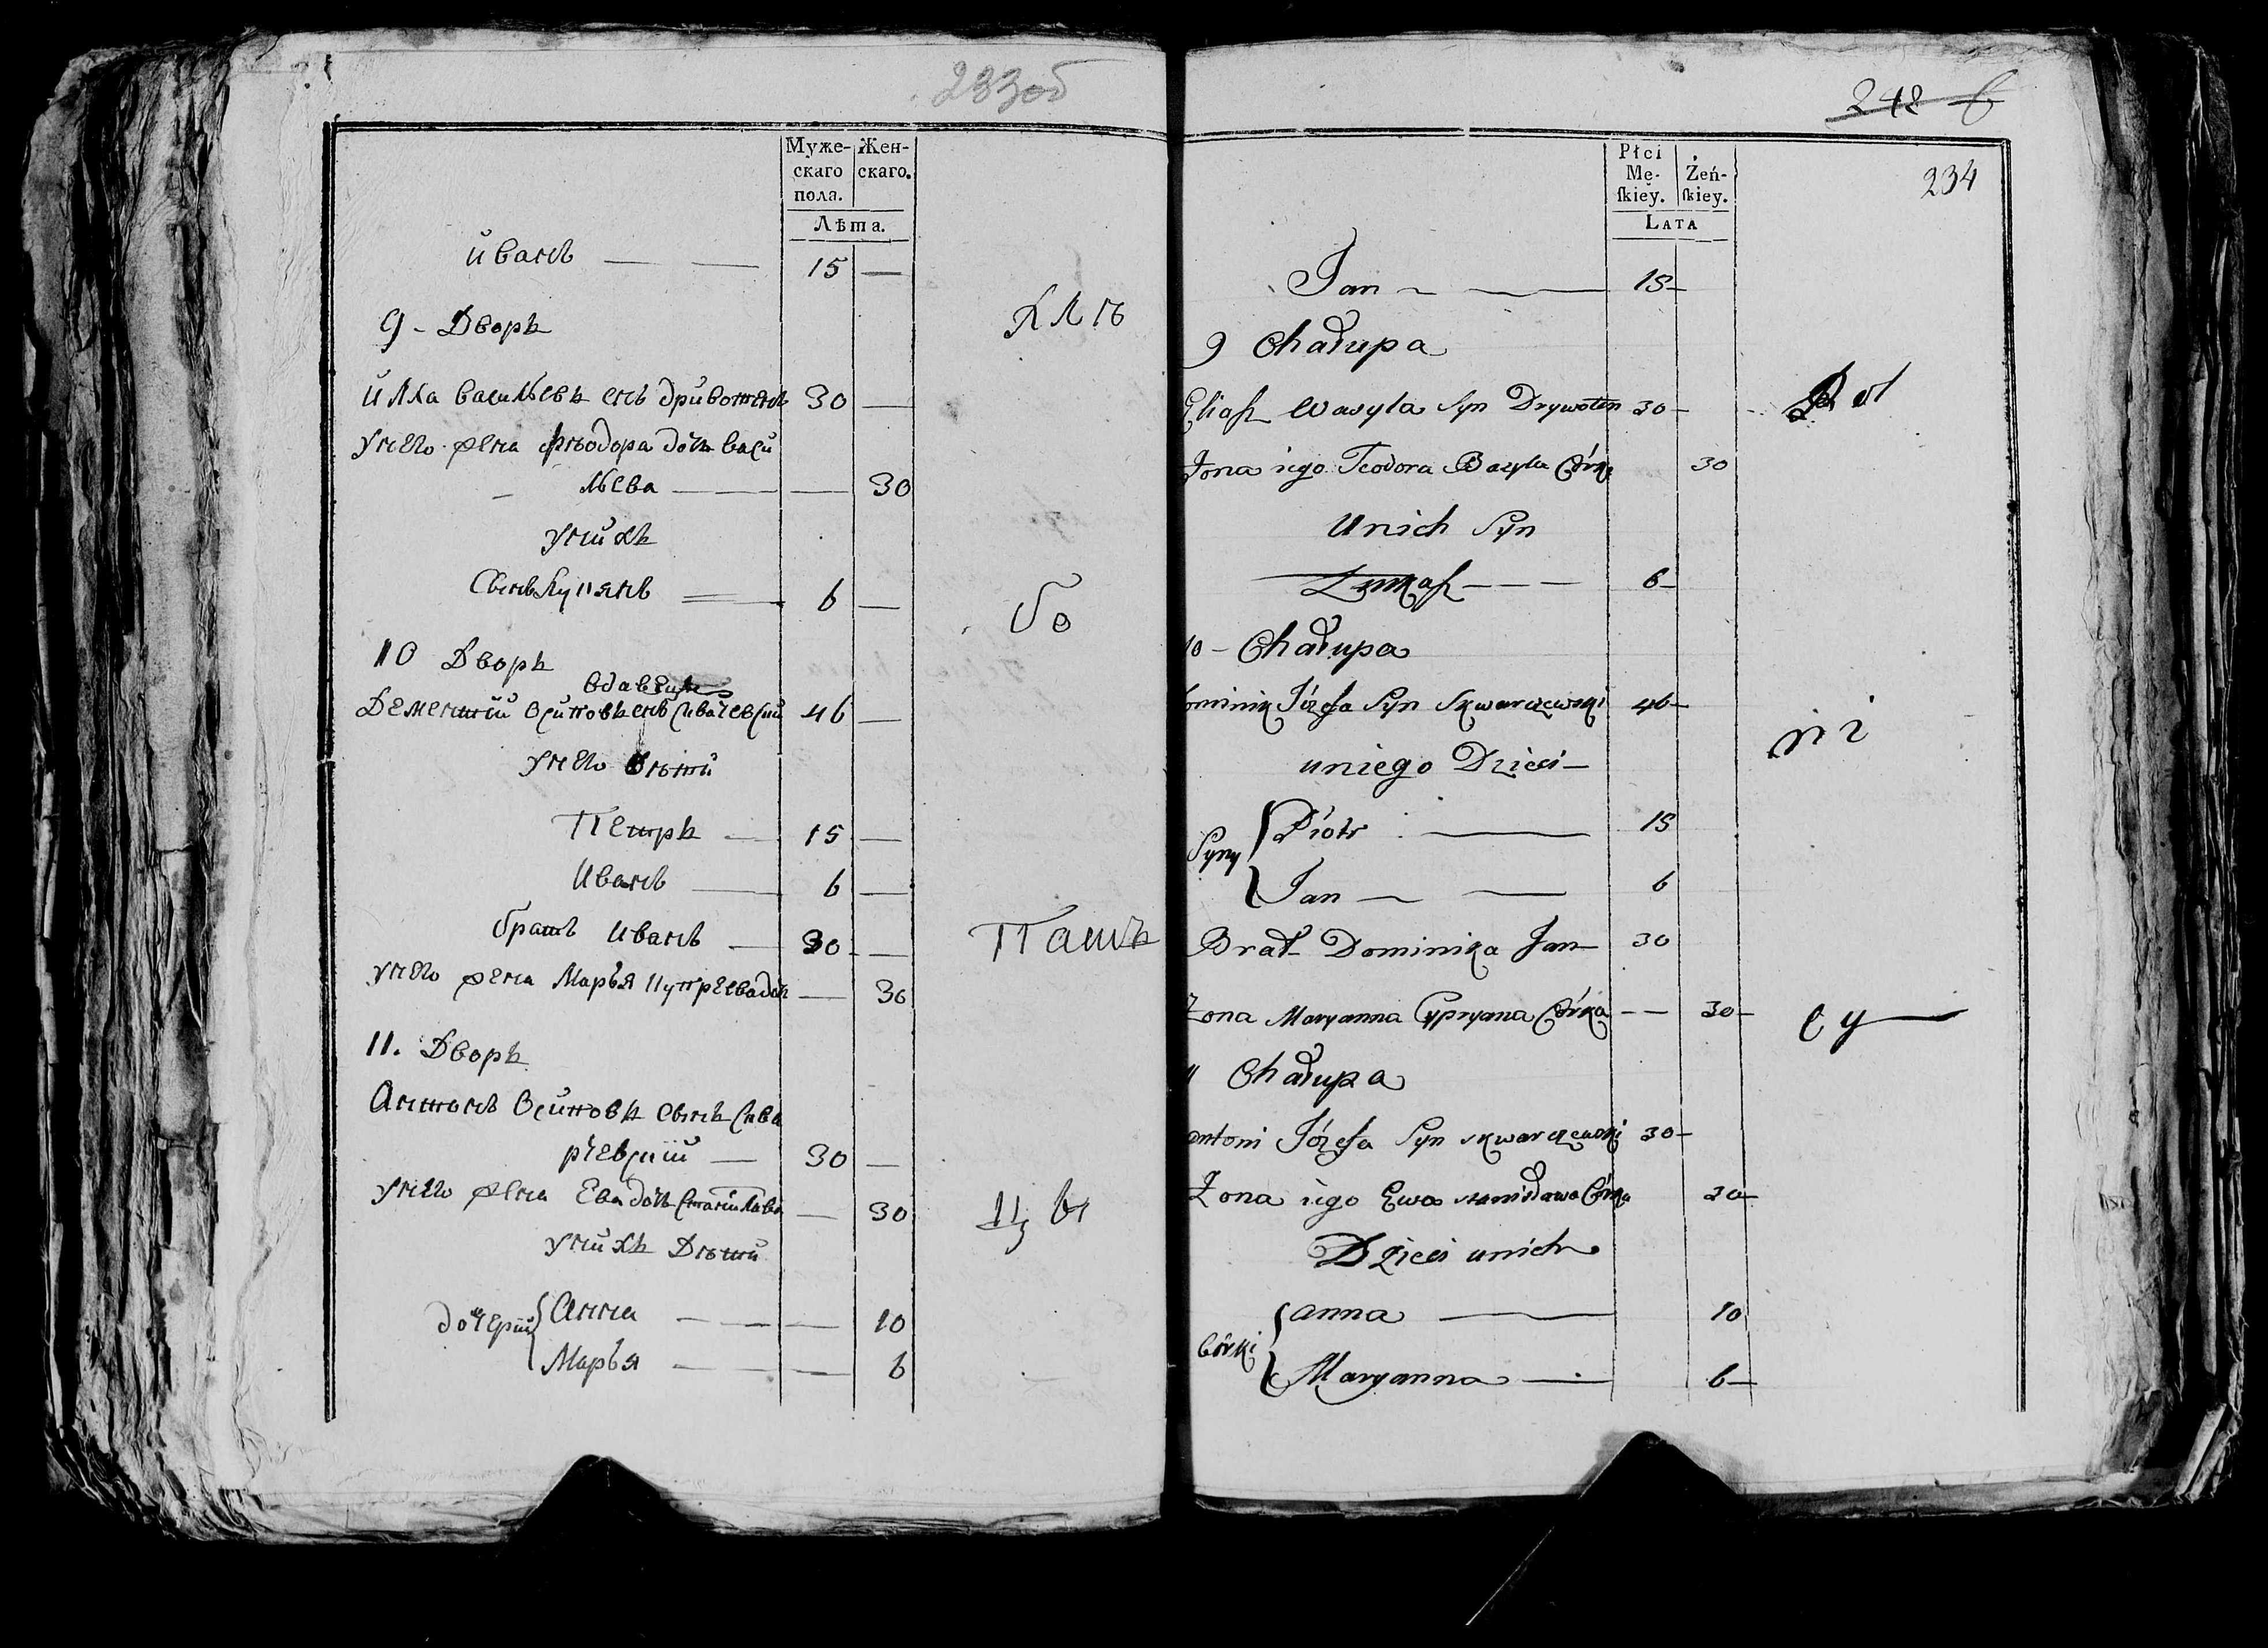 233об
Муже-
скаго
пола.
Жен-
скаго.
Лѣта.
Иванъ — — 15 —
9 - Дворъ
Илiа Васильевъ снъ Дривотень 30 —
У него жена Ѳѣодора дочь Васи
льева — — 30
У нихъ
Сынъ 6 —
10 Дворъ
вдавецъ
Дементiй Осиповъ снъ 46 —
У него Дѣти
Петръ — 15 —
Иванъ — 6 —
братъ Иванъ — 30 —
У него жена Марья дочь — 30
11. Дворъ
Антонъ Осиповъ сынъ Сква
рчевскiй — 30 —
У него жена Ева дочь Станiслава — 30
У нихъ Дѣти
дочери { Анна — — — 10
Марья — — — 6
бо
Пашъ
цы
242
234
Płci
Mę-
ſkiey.
Żeń-
ſkiey.
LATA
Jan — 15 -
9 Chałupa
Eliaſz Wasyla Syn Drywoten 30 -
Żona iego Teodora Bazyla Córka 30
unich Syn
Łukaſz — — 6 -
10 - Chałupa
Dominik Józefa Syn Skwarczewski 46 -
uniego Dzieci -
Syny { Piotr — 15
Jan — 6
Brat Dominika Jan — 30
Żona Maryanna Cypryana Córka — — 30 -
11 Chałupa
Antoni Józefa Syn Skwarczewski 30 -
Żona iego Ewa Stanisława Córka 30 -
Dzieci unich
Córki { Anna — 10
Maryanna — 6 -